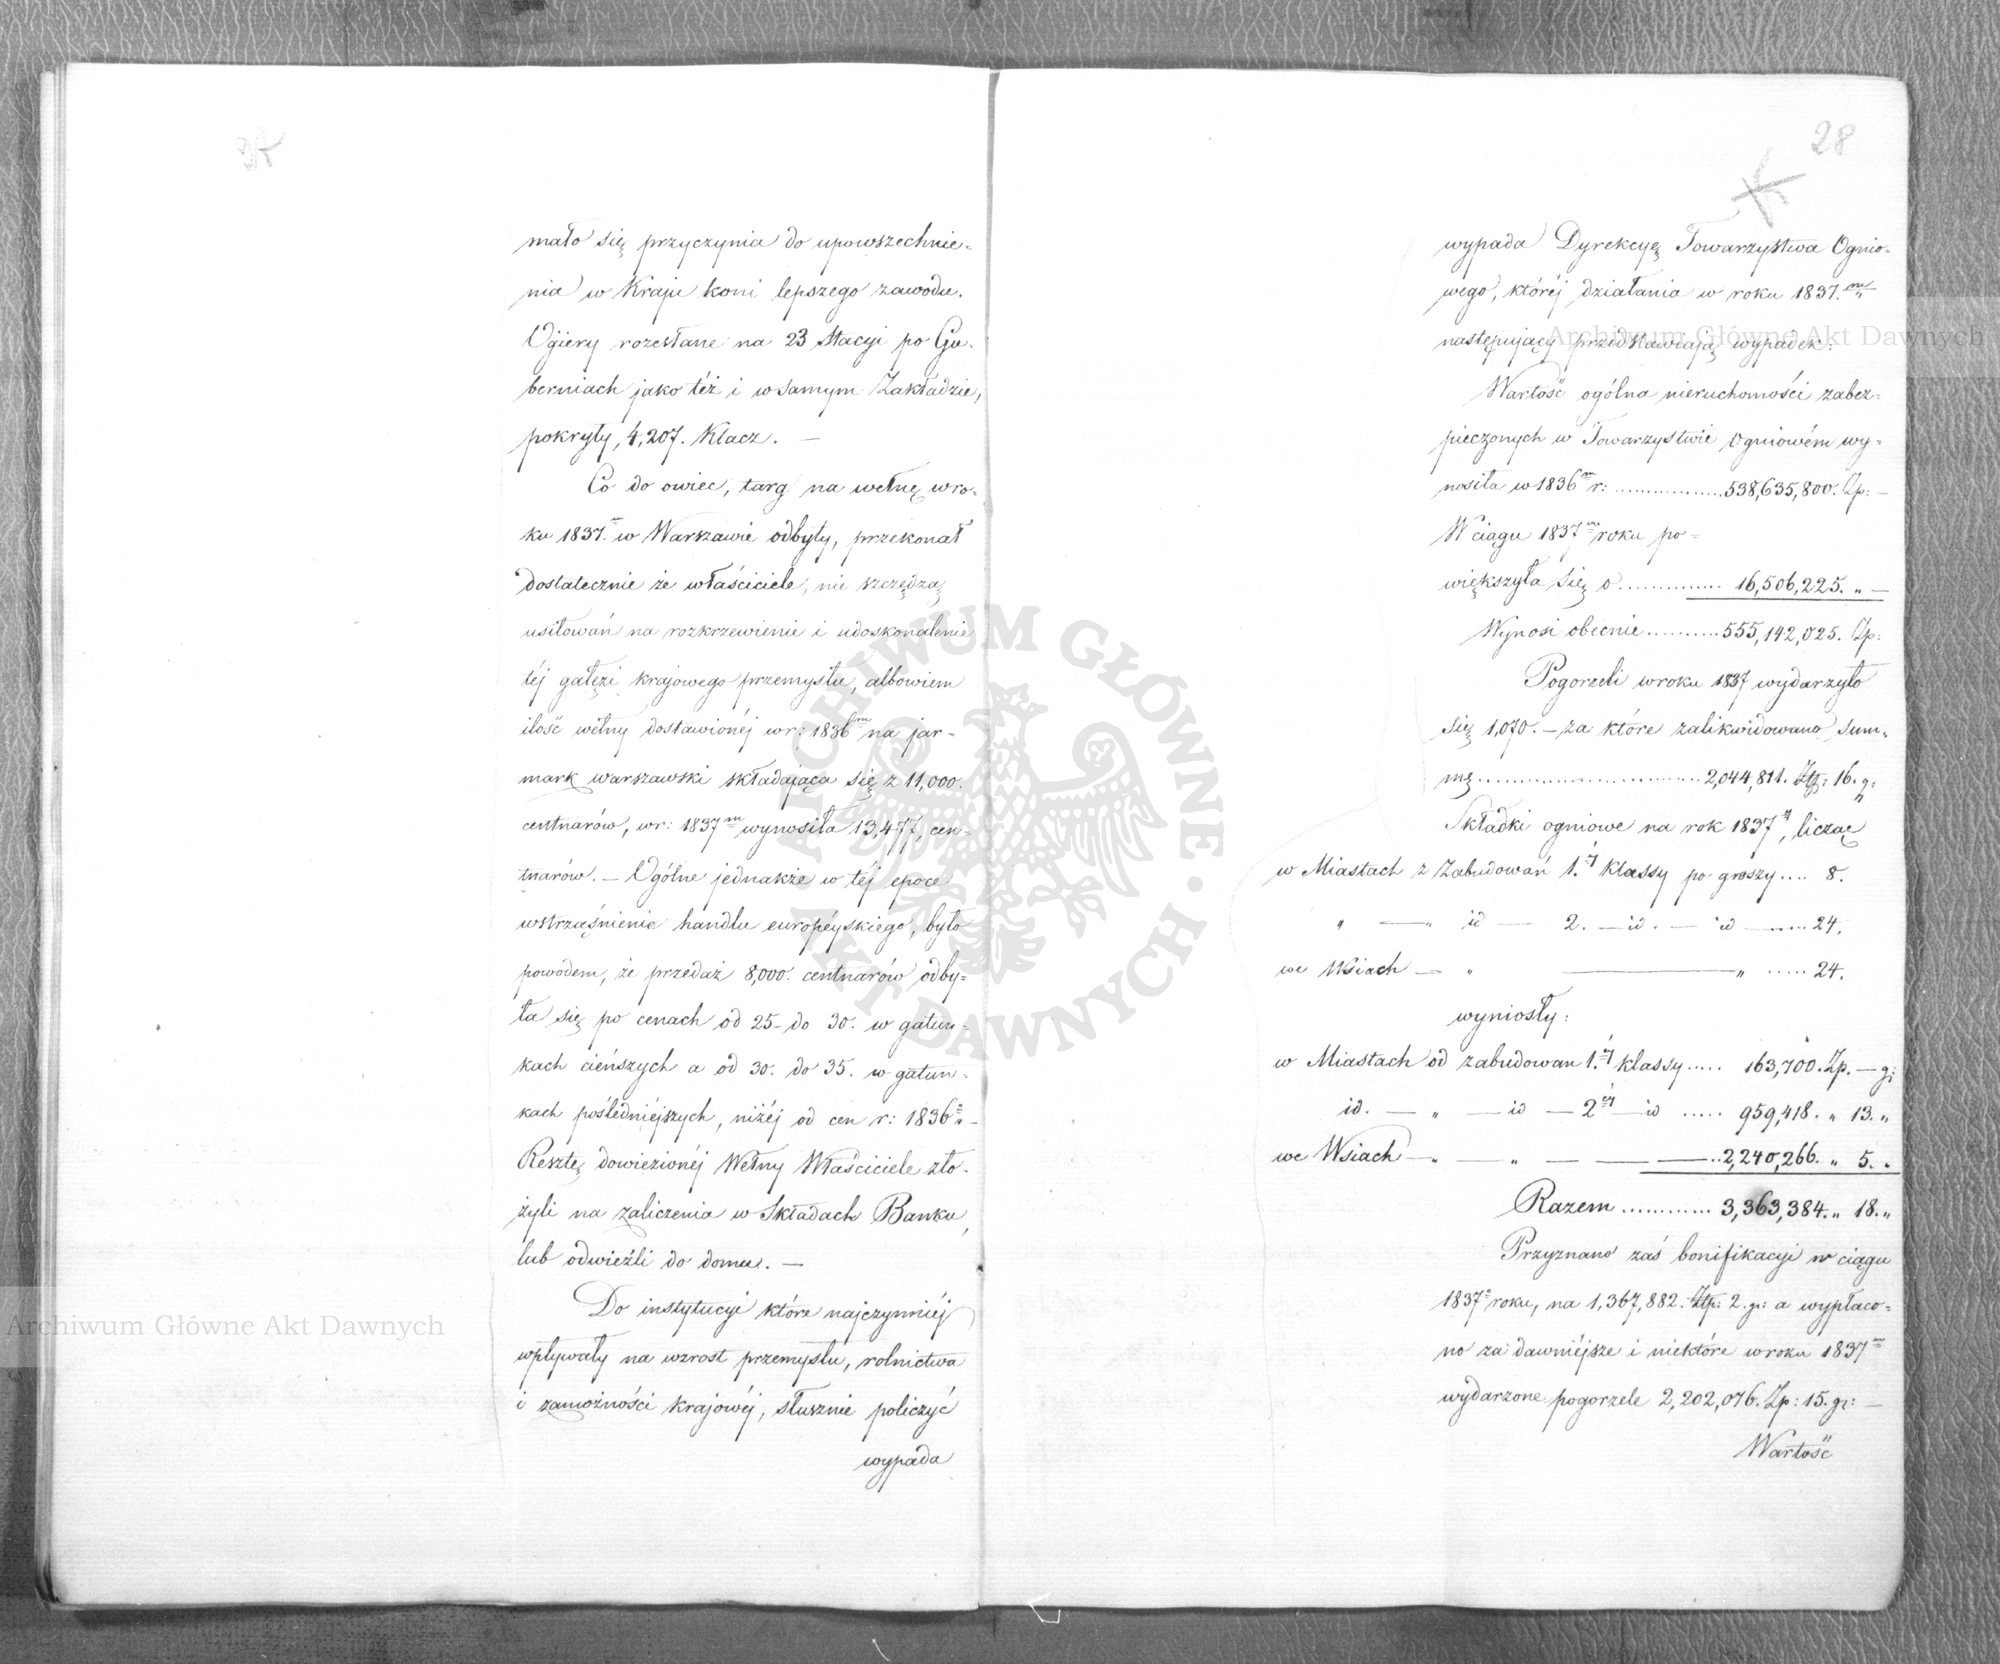 mało się przyczynia do upowszechnie-
nia w Kraju koni lepszego zawodu.
Ogiery rozesłane na 23 Stacyi po Gu-
berniach jako téż i w samym Zakładzie,
pokryły, 4,207. Klacz. —
Co do owiec, targ na wełnę w ro-
ku 1837.m w Warszawie odbyty, przekonał
dostatecznie że właściciele, nie szczędzą
usiłowań na rozkrzewienie i udoskonalenie
téj gałęzi krajowego przemysłu, albowiem
ilość wełny dostawionéj w r: 1836m na jar-
mark warszawski składająca się z 11,000.
centnarów, w r: 1837m wynosiła 13,477, cen-
tnarów. — Ogólne jednakże w téj epoce
wstrząśnienie handlu européyskiego, było
powodem, że przedaż 8,000. centnarów odby-
ła się po cenach od 25- do 30. w gatun-
kach cieńszych a od 30. do 35. w gatun-
kach pośledniéjszych, niżéj od cen r: 1836o —
Resztę dowiezionéj Wełny Właściciele zło-
żyli na zaliczenia w Składach Banku,
lub odwieźli do domu. —
Do instytucyi które najczynniéj
wpływały na wzrost przemysłu, rolnictwa
i zamożności krajowéj, słusznie policzyć
wypada
28
wypada Dyrekcyę Towarzystwa Ognio-
wego, któréj działania w roku 1837.m
następujący przedstawiają wypadek:
Wartość ogólna nieruchomości zabez-
pieczonych w Towarzystwie Ogniowém wy-
nosiła w 1836m r: ................. 538,635,800. Zp: —
W ciągu 1837m roku po-
większyła się o .............. 16,506,225. „ —
Wynosi obecnie .......... 555,142,025. Zp:
Pogorzeli w roku 1837 wydarzyło
się 1,070. — za które zalikwidowano sum-
mę .......................... 2,044,811. Złp: 16. g:
Składki ogniowe na rok 1837y, licząc
w Miastach z Zabudowań 1.éj klassy po groszy .... 8.
„ — „ id — 2. — id. — id — ...... 24.
we Wsiach — „ — „ ..... 24.
wyniosły:
w Miastach od zabudowan 1.éj klassy ..... 163,700. Zp. — g:
id. — „ — id — 2éj — id ..... 959,418. „ 13. „
we Wsiach — „ — „ — — .. 2,240,266. „ 5. „
Razem ........... 3,363,384. „ 18. „
Przyznano zaś bonifikacyi w ciągu
1837o roku, na 1,367,882. Złp: 2. gr: a wypłaco-
no za dawniéjsze i niektóre w roku 1837m
wydarzone pogorzele 2,202,076. Zp: 15. gr: —
Wartość
ARCHIWUM GŁÓWNE AKT DAWNYCH
Archiwum Główne Akt Dawnych
Archiwum Główne Akt Dawnych